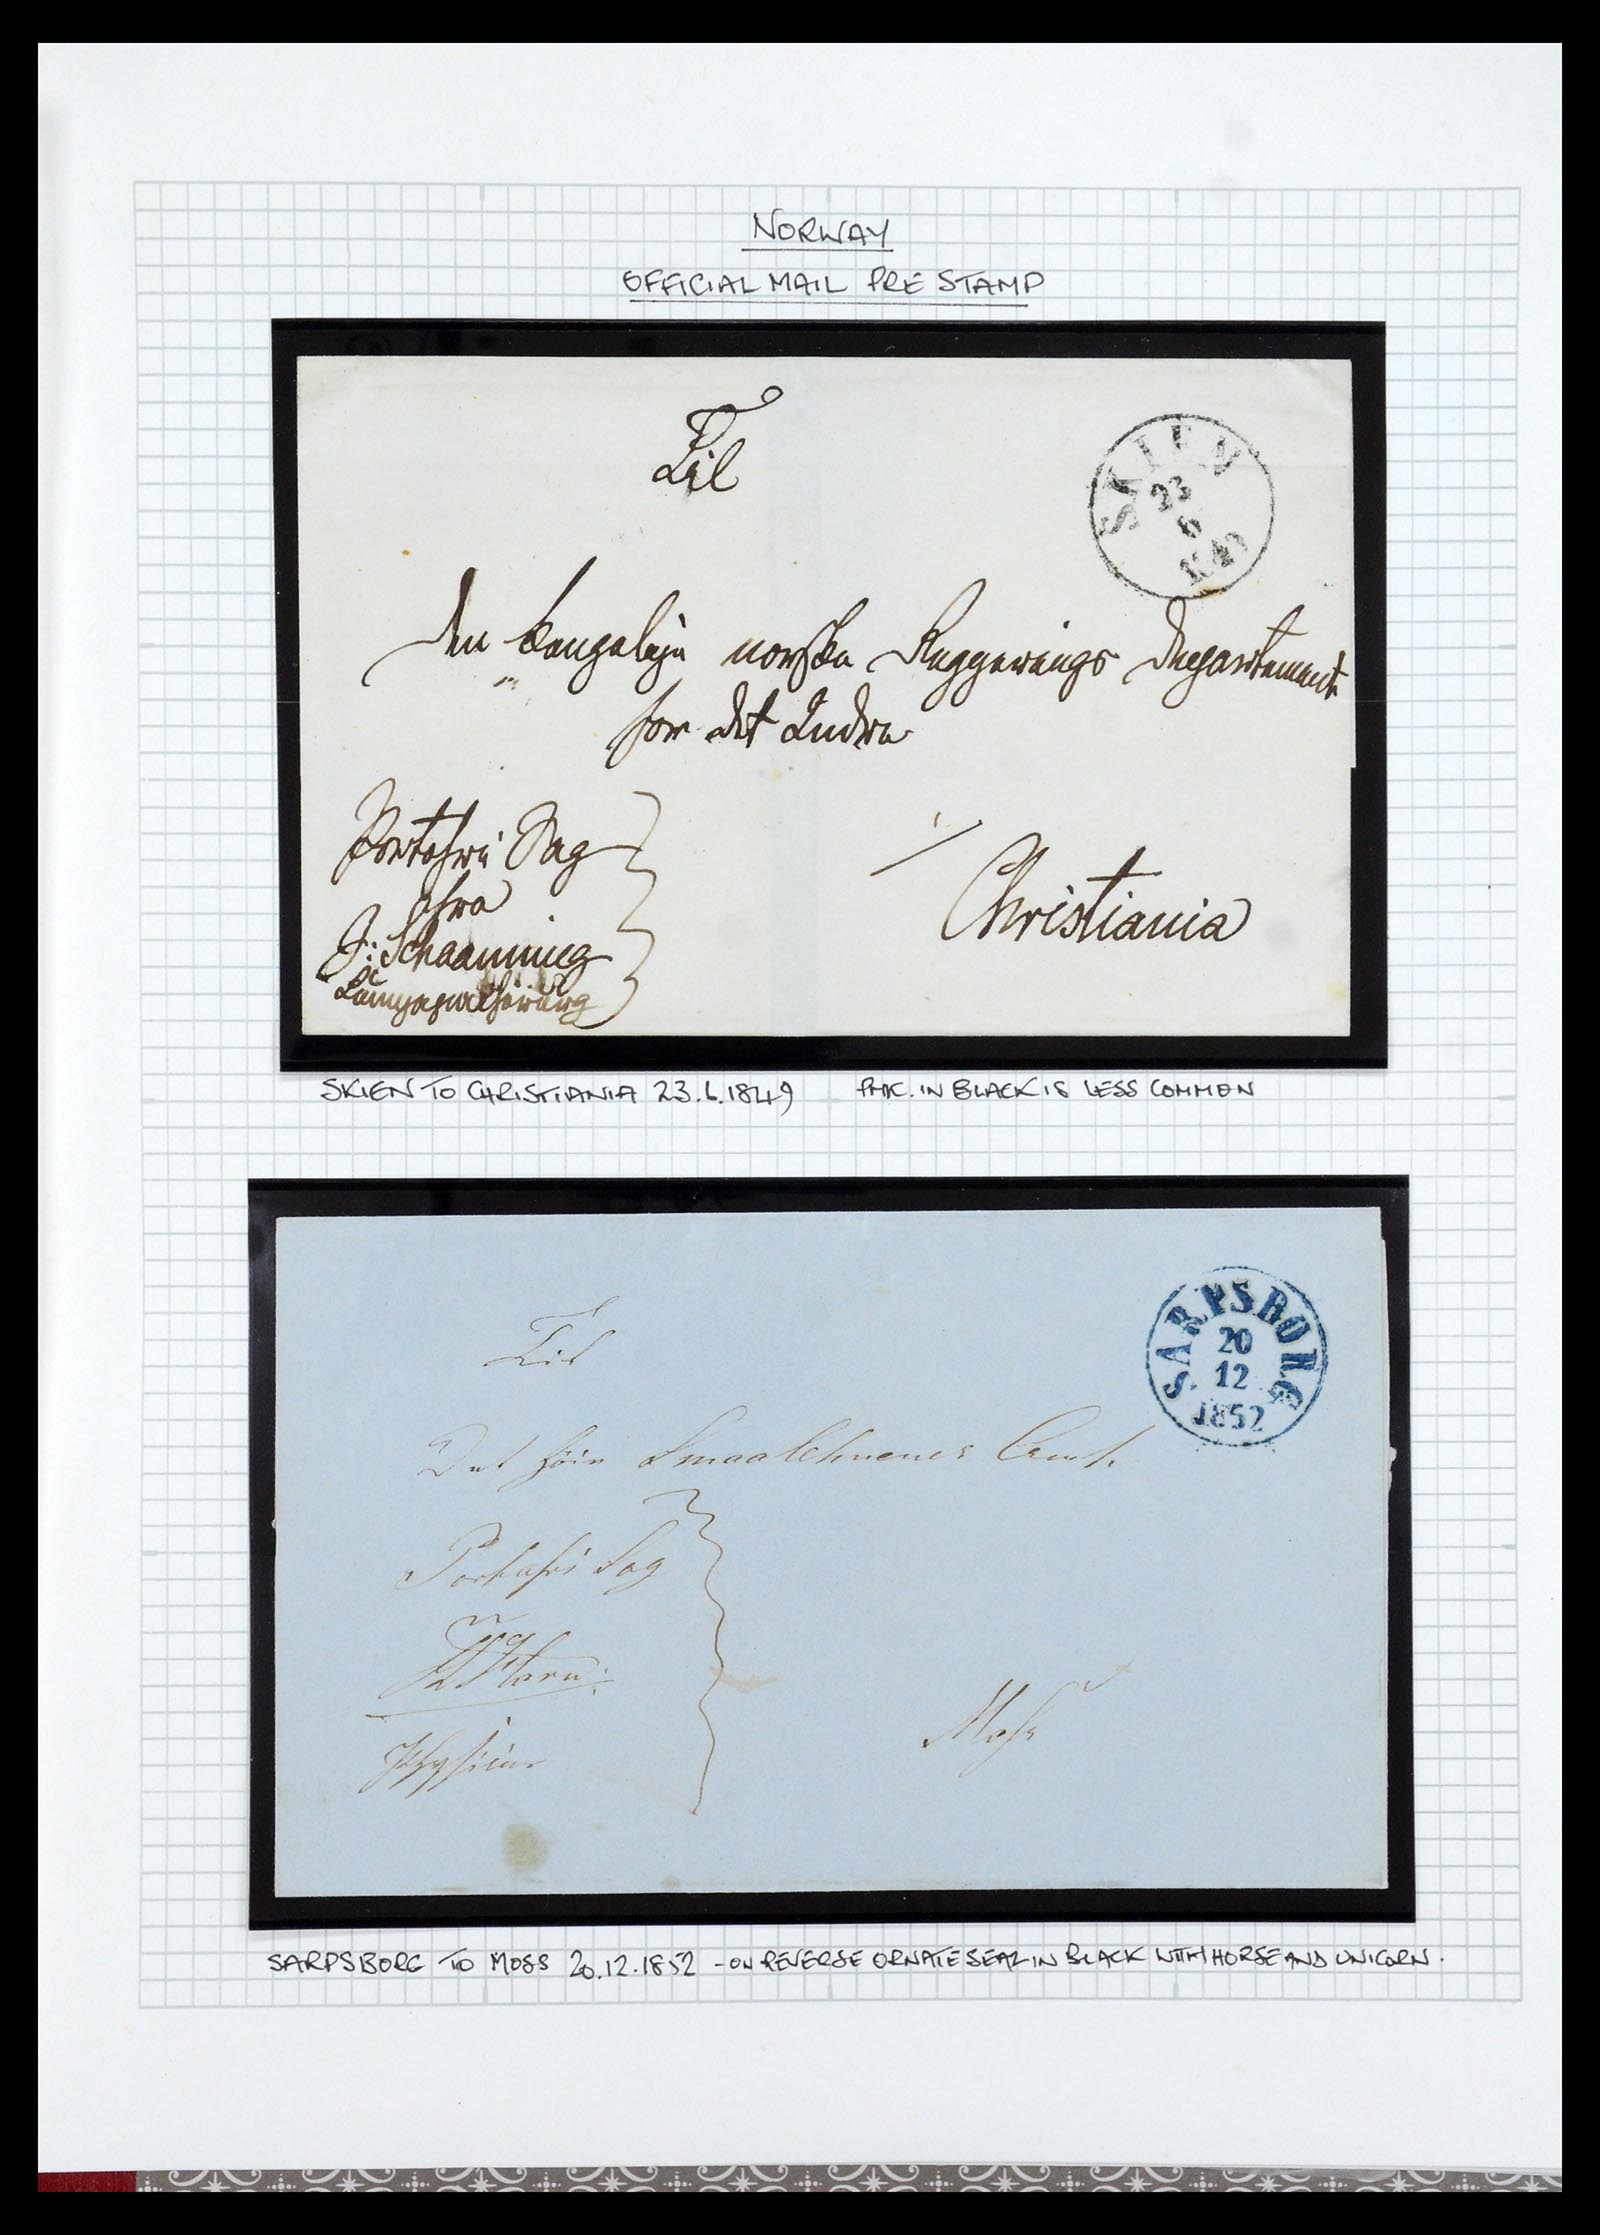 NORWAY
OFFICIAL MAIL PRE STAMP
Til
SKIEN
23
6
1849
den kongelige norske Regjerings Departement
for det Indre
Portofri Sag
fra
J: Schaanning
Christiania
SKIEN TO CHRISTIANIA 23.6.1849 PMK. IN BLACK IS LESS COMMON
Til
SARPSBORG
20
12
1852
Det höie Smaalehnenes Amt.
Portofri Sag
Physicus
Moss
SARPSBORG TO MOSS 20.12.1852 - ON REVERSE ORNATE SEAL IN BLACK WITH HORSE AND UNICORN.